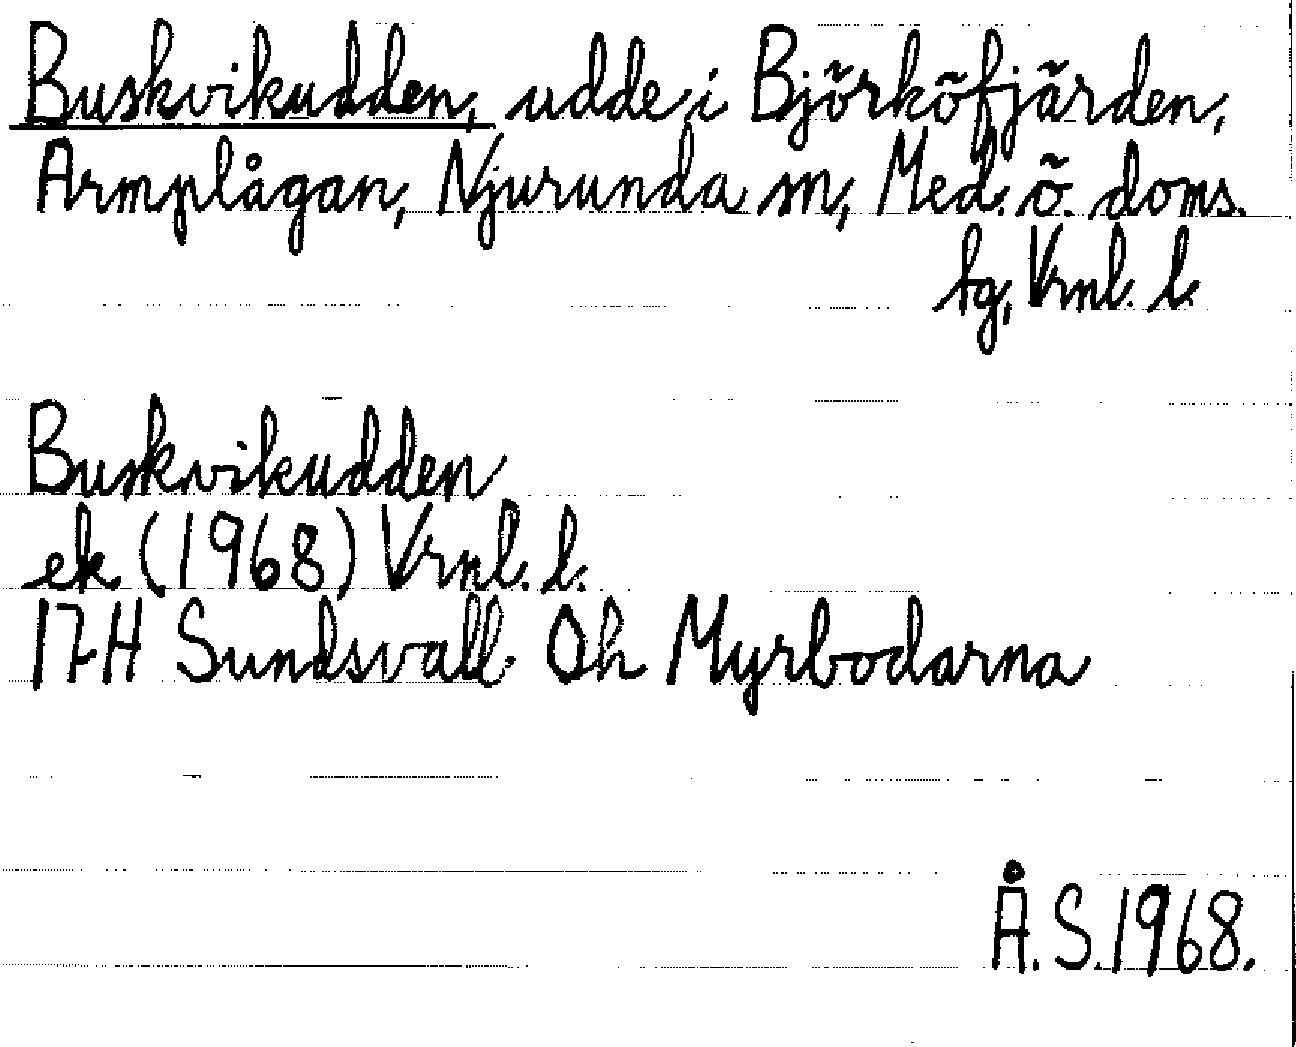 Buskvikudden, udde i Björköfjärden,
Armplågan, Njurunda sn, Med. ö. doms.
tg, Vrnl. l.
Buskvikudden
ek (1968) Vrnl. l.
17H Sundsvall Oh Myrbodarna
Å.S.1968.